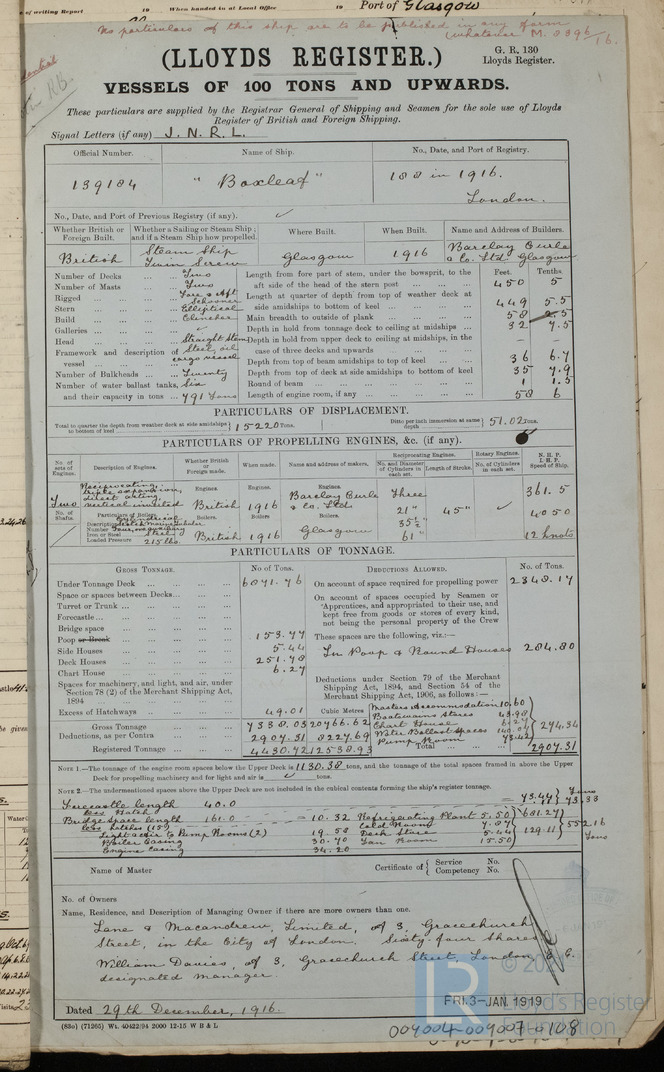 of writing Report 19 When handed in at Local Office 19 Port of Glasgow
No particulars of this ship are to be published in any form
(whatever M. 3396/16.
(LLOYDS REGISTER.)
G. R. 130
Lloyds Register.
VESSELS OF 100 TONS AND UPWARDS.
These particulars are supplied by the Registrar General of Shipping and Seamen for the sole use of Lloyds
Register of British and Foreign Shipping.
Signal Letters (if any) J. N. R. L.
Official Number. Name of Ship. No., Date, and Port of Registry.
139184 "Boxleaf" 188 in 1916.
London.
No., Date, and Port of Previous Registry (if any).
Whether British or Foreign Built. Whether a Sailing or Steam Ship; and if a Steam Ship how propelled. Where Built. When Built. Name and Address of Builders.
British Steam Ship Twin Screw Glasgow 1916 Barclay Curle & Co. Ltd. Glasgow
Number of Decks Two
Number of Masts Two
Rigged Fore & Aft Schooner
Stern Elliptical
Build Clincher
Galleries
Head Straight Stem
Framework and description of vessel Steel, oil cargo vessel
Number of Bulkheads Twenty
Number of water ballast tanks, Six
and their capacity in tons 791 Tons
Feet. Tenths.
Length from fore part of stem, under the bowsprit, to the aft side of the head of the stern post 450 5
Length at quarter of depth from top of weather deck at side amidships to bottom of keel 449 5.5
Main breadth to outside of plank 58 2.5
Depth in hold from tonnage deck to ceiling at midships 32 7.5
Depth in hold from upper deck to ceiling at midships, in the case of three decks and upwards — —
Depth from top of beam amidships to top of keel 36 6.7
Depth from top of deck at side amidships to bottom of keel 35 7.9
Round of beam 1 1.5
Length of engine room, if any 58 6
PARTICULARS OF DISPLACEMENT.
Total to quarter the depth from weather deck at side amidships to bottom of keel 15220 Tons. Ditto per inch immersion at same depth 51.02 Tons.
PARTICULARS OF PROPELLING ENGINES, &c. (if any).
No. of sets of Engines. Description of Engines. Whether British or Foreign made. When made. Name and address of makers. Reciprocating Engines. No. and Diameter of Cylinders in each set. Length of Stroke. Rotary Engines. No. of Cylinders in each set. N. H. P. I. H. P. Speed of Ship.
Two Reciprocating, triple expansion, direct acting, vertical inverted
Engines. British Engines. 1916 Engines. Barclay Curle & Co. Ltd Three 21" 35½" 61" 45" 361.5 4050 12 knots
No. of Shafts. Particulars of Boilers.
Description
Number Four, one auxiliary
Iron or Steel Steel
Loaded Pressure 215 lbs.
Boilers. British Boilers. 1916 Boilers. Glasgow
PARTICULARS OF TONNAGE.
GROSS TONNAGE. No. of Tons. DEDUCTIONS ALLOWED. No. of Tons.
Under Tonnage Deck 6871.76
Space or spaces between Decks
Turret or Trunk
Forecastle
Bridge space
Poop or Break 153.77
Side Houses 5.44
Deck Houses 251.78
Chart House 6.27
Spaces for machinery, and light, and air, under Section 78 (2) of the Merchant Shipping Act, 1894
Excess of Hatchways 49.01
Cubic Metres
Gross Tonnage 7338.03 20766.62
Deductions, as per Contra 2907.31 8227.69
Registered Tonnage 4430.72 12538.93
On account of space required for propelling power 2348.17
On account of spaces occupied by Seamen or Apprentices, and appropriated to their use, and kept free from goods or stores of every kind, not being the personal property of the Crew
These spaces are the following, viz.:—
In Poop & Round Houses 284.80
Deductions under Section 79 of the Merchant Shipping Act, 1894, and Section 54 of the Merchant Shipping Act, 1906, as follows:—
Masters Accommodation 10.60
Boatswains Stores 43.98
Chart House 6.27
Water Ballast Spaces
Pump Room 73.42
274.34
Total 2907.31
NOTE 1.—The tonnage of the engine room spaces below the Upper Deck is 1130.38 tons, and the tonnage of the total spaces framed in above the Upper
Deck for propelling machinery and for light and air is tons.
NOTE 2.—The undermentioned spaces above the Upper Deck are not included in the cubical contents forming the ship's register tonnage.
Forecastle length 40.0 = 73.44
less Hatch 73.33 Tons
Bridge space length 161.0 681.27
less hatches (15) = 10.32 Refrigerating Plant 5.50
Cold Room 7.87
Light & air to Pump Rooms (2) 19.58 Deck Store 5.44
129.11 552.16 Tons
Boiler Casing 30.70 Fan Room 15.50
Engine Casing 34.20
Name of Master Certificate of Service No.
Competency No.
No. of Owners
Name, Residence, and Description of Managing Owner if there are more owners than one.
Lane & Macandrew, Limited, of 3, Gracechurch
Street, in the City of London. Sixty-four Shares
William Davies, of 3, Gracechurch Street, London, E.C.
designated manager.
© 20
Lloyd's Register
Foundation
FRI. 3-JAN. 1919
Dated 29th December, 1916.
(83o) (71265) Wt. 40422/94 2000 12-15 W B & L
009004-009007-0108